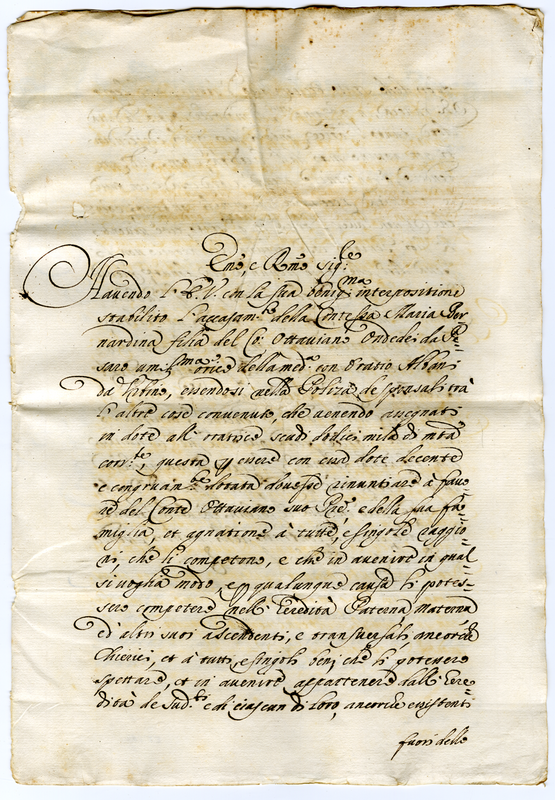 Em.º e Rmo Sig.re
Havendo l'E. V. con la sua benig.ma interpositione
stabilito l'accasam.to della Contessa Maria Ber=
nardina figlia del Co: Ottaviano Ondedei da Pe=
saro um.ma oratrice della med.a con Oratio Albani
da Urbino, essendosi nella Poliza de sponsali trà
l'altre cose convenuto, che venendo assegnati
in dote all'oratrice scudi dodici mila di mta
corr.te, questa p essere con cuid dote decente
e congruam.te dotata dovesse rinuntiare à favo=
re del Conte Ottaviano suo Pre. e della sua fa=
miglia, et agnatione à tutte, e singole raggio=
ni, che li competono, e che in avenire in qual=
sivoglia modo, e p qualunque causa li potes=
sero competere nell'Eredità Paterna, Materna
ed altri suoi ascendenti, e transversali, ancorche
Chierici, et à tutti, e singoli beni che li potevero
spettare, et in avenire appartenere dall'Ere=
dità de Sud.ti e di ciascun di loro, ancorche esistenti
fuori delle